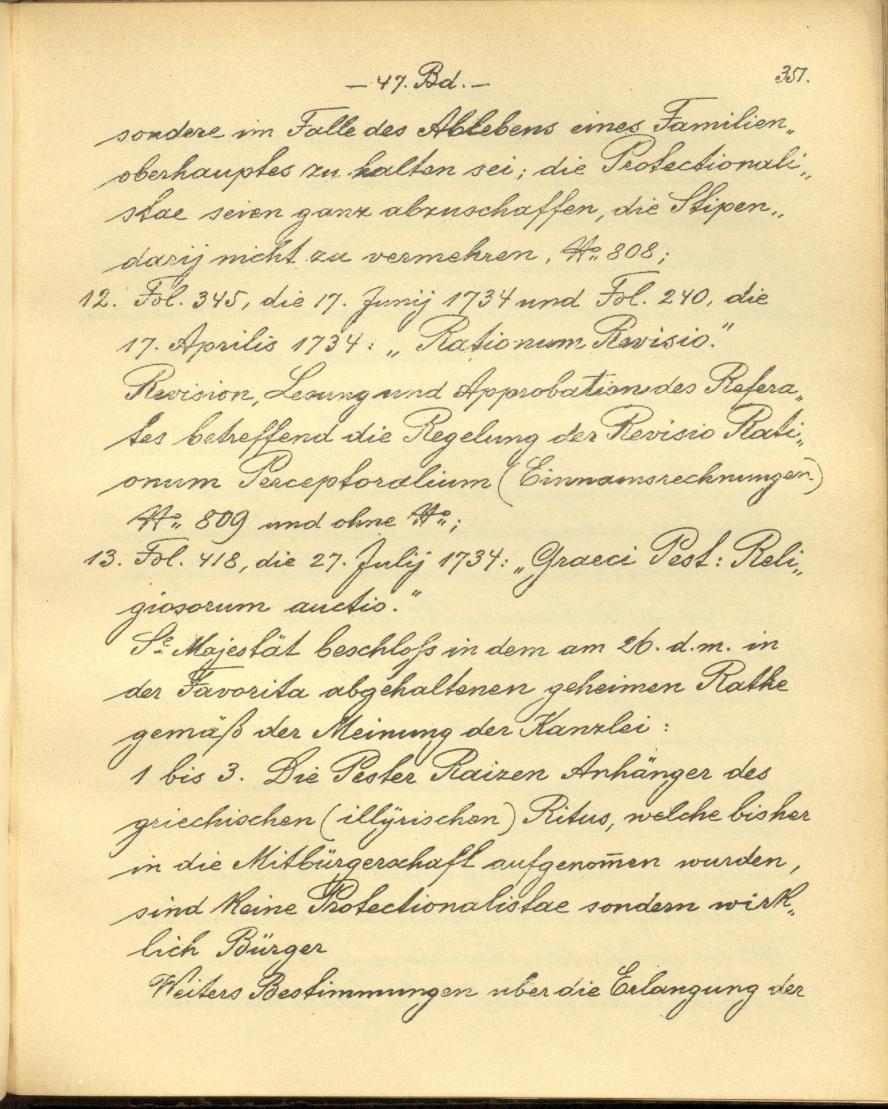 — 47. Bd. —
351.
sondere im Falle des Ablebens eines Familien„
oberhauptes zu halten sei; die Protectionali„
stae seien ganz abzuschaffen, die Stipen„
darij nicht zu vermehren, No. 808;
12. Fol. 345, die 17. Junij 1734 und Fol. 240, die
17. Aprilis 1734: „Rationum Revisio.“
Revision, Lesung und Approbation des Refera„
tes betreffend die Regelung der Revisio Rati„
onum Perceptoralium (Einnamsrechnungen)
No. 809 und ohne No.;
13. Fol. 418, die 27. Julij 1734: „Graeci Pest: Reli„
giosorum auctio.“
Se. Majestät beschloß in dem am 26. d. m. in
der Favorita abgehaltenen geheimen Rathe
gemäß der Meinung der Kanzlei:
1 bis 3. Die Pester Raizen Anhänger des
griechischen (illÿrischen) Ritus, welche bisher
in die Mitbürgerschaft aufgenom̄en wurden,
sind keine Protectionalistae sondern wirk„
lich Bürger
Weiters Bestimmungen uber die Erlangung der